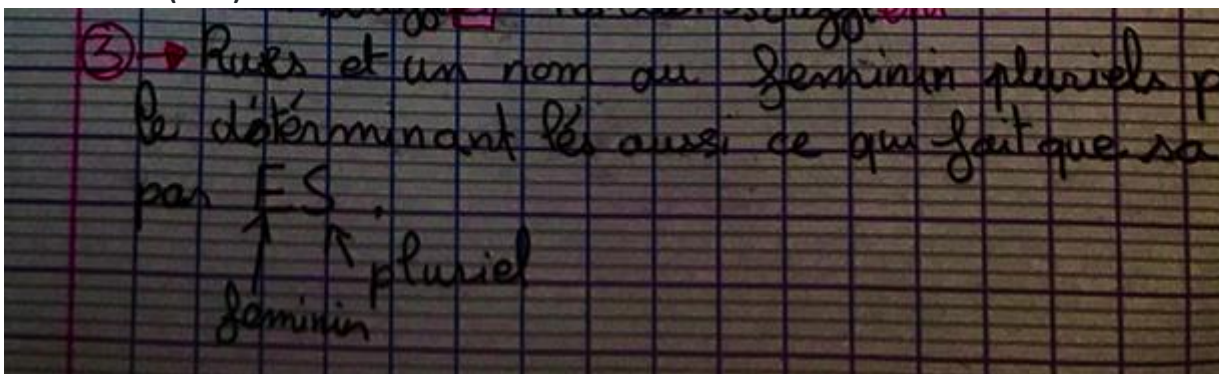 ③ → Rues et un nom au feminin pluriels p
le détérminant lés aussi ce qui fait que sa
par ES.
pluriel
feminin